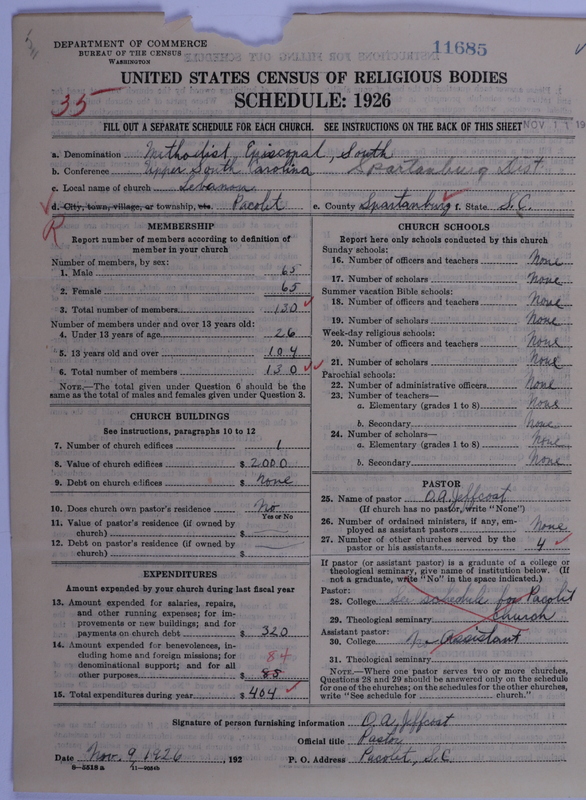 11685
DEPARTMENT OF COMMERCE
BUREAU OF THE CENSUS
WASHINGTON
UNITED STATES CENSUS OF RELIGIOUS BODIES
SCHEDULE: 1926
35
FILL OUT A SEPARATE SCHEDULE FOR EACH CHURCH. SEE INSTRUCTIONS ON THE BACK OF THIS SHEET
NOV 11 19
a. Denomination Methodist Episcopal, South
b. Conference Upper South Carolina Spartanburg Dist
c. Local name of church Lebanon
d. City, town, village, or township, etc. Pacolet e. County Spartanburg f. State S.C.
R
MEMBERSHIP
Report number of members according to definition of member in your church
Number of members, by sex:
1. Male 65
2. Female 65
3. Total number of members 130
Number of members under and over 13 years old:
4. Under 13 years of age 26
5. 13 years old and over 104
6. Total number of members 130
NOTE.—The total given under Question 6 should be the same as the total of males and females given under Question 3.
CHURCH BUILDINGS
See instructions, paragraphs 10 to 12
7. Number of church edifices 1
8. Value of church edifices $ 2000
9. Debt on church edifices $ None
10. Does church own pastor's residence No
Yes or No
11. Value of pastor's residence (if owned by church) $
12. Debt on pastor's residence (if owned by church) $
EXPENDITURES
Amount expended by your church during last fiscal year
13. Amount expended for salaries, repairs, and other running expenses; for improvements or new buildings; and for payments on church debt $ 320
14. Amount expended for benevolences, including home and foreign missions; for denominational support; and for all other purposes $ 85 84
15. Total expenditures during year $ 404
CHURCH SCHOOLS
Report here only schools conducted by this church
Sunday schools:
16. Number of officers and teachers None
17. Number of scholars None
Summer vacation Bible schools:
18. Number of officers and teachers None
19. Number of scholars None
Week-day religious schools:
20. Number of officers and teachers None
21. Number of scholars None
Parochial schools:
22. Number of administrative officers None
23. Number of teachers—
a. Elementary (grades 1 to 8) None
b. Secondary None
24. Number of scholars—
a. Elementary (grades 1 to 8) None
b. Secondary None
PASTOR
25. Name of pastor O.A. Jeffcoat
(If church has no pastor, write "None")
26. Number of ordained ministers, if any, employed as assistant pastors None
27. Number of other churches served by the pastor or his assistants 4
If pastor (or assistant pastor) is a graduate of a college or theological seminary, give name of institution below. (If not a graduate, write "No" in the space indicated.)
Pastor:
28. College See schedule for Pacolet
29. Theological seminary Church
Assistant pastor:
30. College No Assistant
31. Theological seminary
NOTE.—Where one pastor serves two or more churches, Questions 28 and 29 should be answered only on the schedule for one of the churches; on the schedules for the other churches, write "See schedule for church."
Signature of person furnishing information O.A. Jeffcoat
Official title Pastor
Date Nov. 9, 1926, 192 P. O. Address Pacolet, S.C.